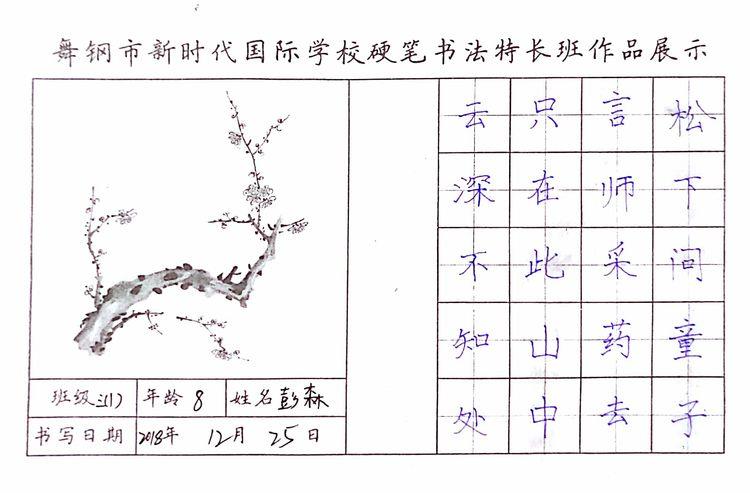 舞钢市新时代国际学校硬笔书法特长班作品展示
松下问童子
言师采药去
只在此山中
云深不知处
班级 三(1) 年龄 8 姓名 彭森
书写日期 2018年 12月 25日